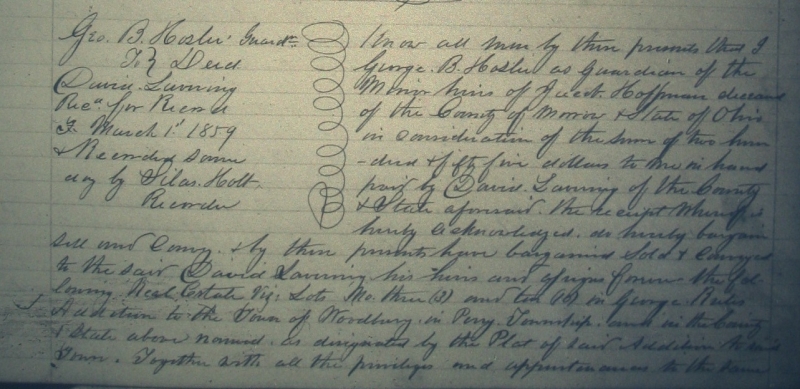 Geo. B. Hosler Guardn
To } Deed
David Lavering
Recd. for Record
March 1st 1859
& Recorded same
day by Silas Holt
Recorder
Know all men by these presents that I
George. B. Hosler as Guardian of the
Minor heirs of Jacob. Hoffman deceased
of the County of Morrow & State of Ohio
in consideration of the sum of two hun
-dred & fifty five dollars to me in hand
paid by David. Lavering of the County
& State aforesaid. the receipt Whereof is
hereby acknowledged. do hereby bargain
Sell and Convey. & by these presents have bargained Sold & Conveyed
to the said David Lavering his heirs and assigns forever the fol-
lowing Real Estate Viz: Lots No. three (3) and ten (10) in George.
Addition to the Town of Woodbury. in Perry Township. and in the County
& State above named. as designated by the Plat of said Addition to said
Town. Together with all the privileges and appurtenances to the same